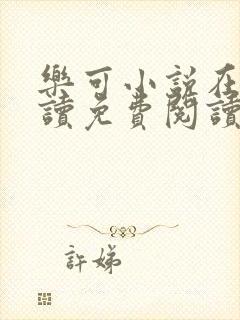 樂可小說在
讀免費閱讀
許娣